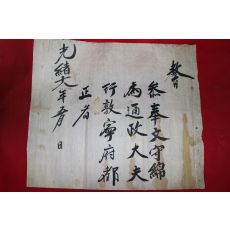 敎旨
參奉文守錦
爲通政大夫
行敦寧府都
正者
光緖六年 月 日